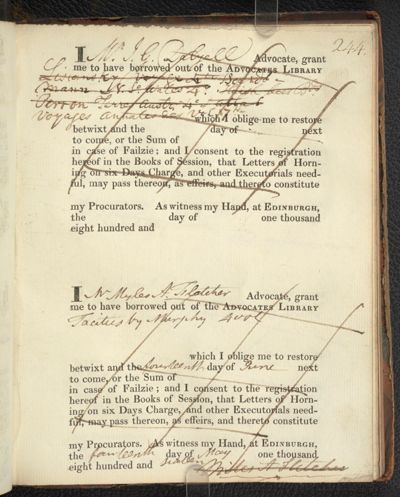 244.
I Mr. J. G. Dalyell Advocate, grant
me to have borrowed out of the ADVOCATES LIBRARY
Lisiansky Voyage
Voyages which I oblige me to restore
betwixt and the day of next
to come, or the Sum of
in case of Failzie; and I consent to the registration
hereof in the Books of Session, that Letters of Horn-
ing on six Days Charge, and other Executorials need-
ful, may pass thereon, as effeirs, and thereto constitute
my Procurators. As witness my Hand, at EDINBURGH,
the day of one thousand
eight hundred and
I Mr Myles A. Fletcher Advocate, grant
me to have borrowed out of the ADVOCATES LIBRARY
Tacitus by Murphy 4 vols
which I oblige me to restore
betwixt and the fourteenth day of June next
to come, or the Sum of
in case of Failzie; and I consent to the registration
hereof in the Books of Session, that Letters of Horn-
ing on six Days Charge, and other Executorials need-
ful, may pass thereon, as effeirs, and thereto constitute
my Procurators. As witness my Hand, at EDINBURGH,
the fourteenth day of May one thousand
eight hundred and sixteen Myles A Fletcher